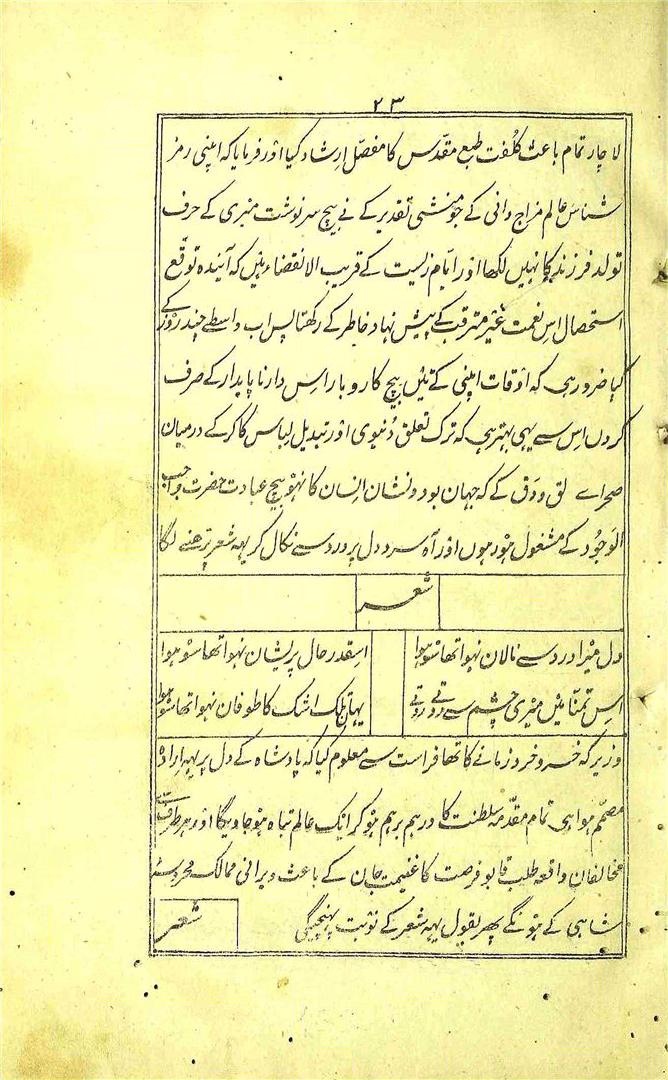 ۲۳
لاچار تمام باعث کلفت طبع مقدّس کا مفصّل ارشاد کیا اور فرمایا کہ اپنی رمز
شناس عالم مزاج دانی کے جو منشی تقدیر کے نے بیچ سرنوشت میری کے حرف
تولد فرزند کا نہیں لکھا اور ایّام زیست کے قریب الانقضاء ہیں کہ آیندہ توقّع
استحصال اس نعمت غیر مترقب کے پیش نہاد خاطر کے رکھتا پس اب واسطے چند روز کے
کیا ضرور ہی کہ اوقات اپنی کے تئیں بیچ کاروبار اس دار ناپایدار کے صرف
کروں اس سے یہی بہتر ہی کہ ترک تعلق دنیوی اور تبدیل لباس کا کر کے درمیان
صحراے لق و دق کے کہ جہان بود و نشان انسان کا نہو بیچ عبادت حضرت واجب
الوجُود کے مشغول ہو رہوں اور آہ سرد دل پر درد سے نکال کر یہہ شعر پڑھنے لگا
شعر
دل میرا درد سے نالان نہوا تھا سو ہوا
اسقدر حال پریشان نہوا تھا سو ہوا
اس تمنّا میں میری چشم سے روتے روتے
یہاں تلک اشک کا طوفان نہوا تھا سو ہوا
وزیر کہ خسرو خرد زمانے کا تھا فراست سے معلوم کیا کہ پادشاہ کے دل پر یہہ ارادہ
مصمّم ہوا ہی تمام مقدّمہ سلطنت کا درہم برہم ہو کر ایک عالم تباہ ہو جاویگا اور ہر طرف سے
مخالفان واقعہ طلب قابو فرصت کا غنیمت جان کے باعث ویرانی ممالک محروسہ
شاہی کے ہونگے پھر بقول یہہ شعر کے نوبت پہنچیگی
شعر